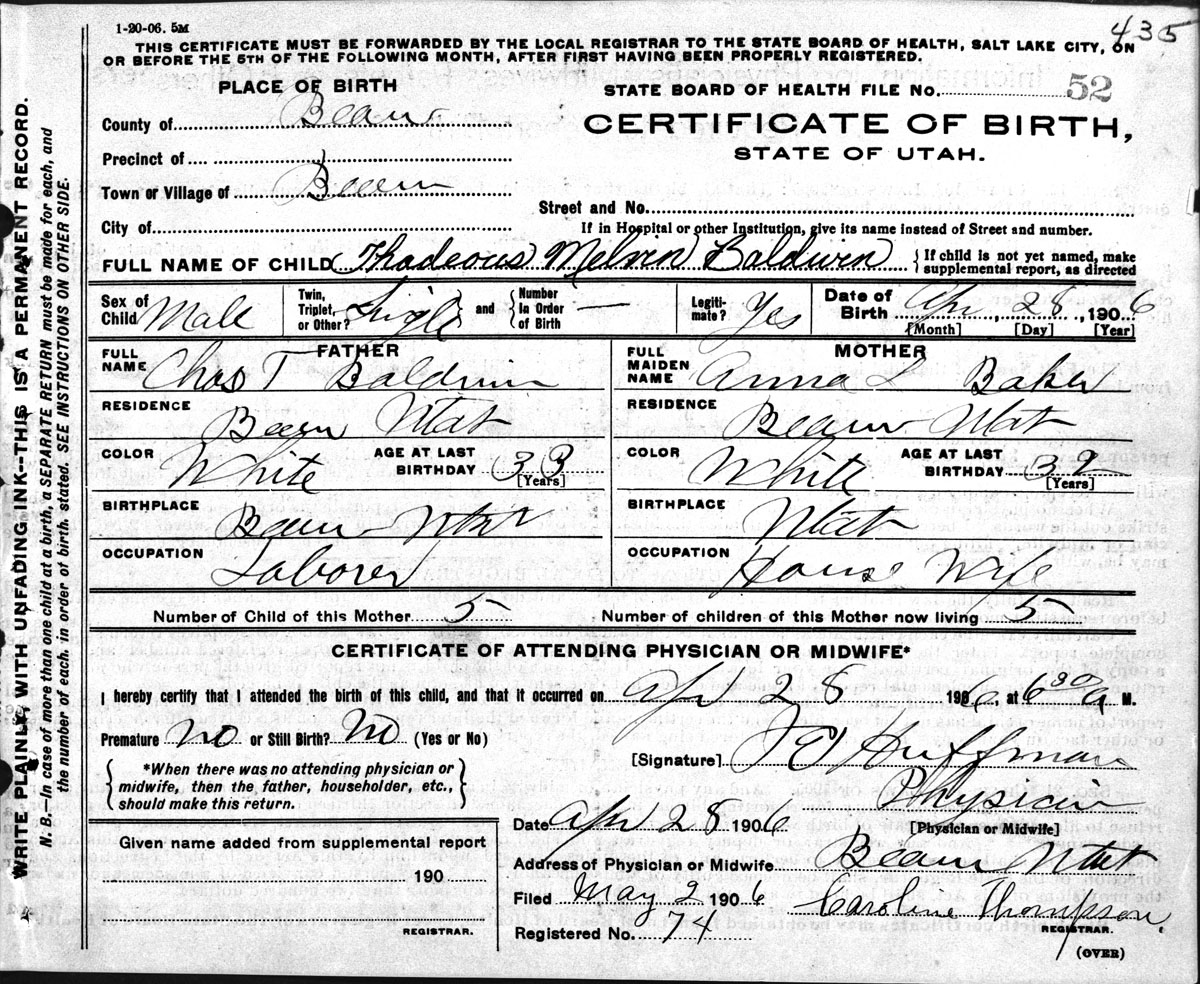 1-20-06. 5M
435
THIS CERTIFICATE MUST BE FORWARDED BY THE LOCAL REGISTRAR TO THE STATE BOARD OF HEALTH, SALT LAKE CITY, ON
OR BEFORE THE 5TH OF THE FOLLOWING MONTH, AFTER FIRST HAVING BEEN PROPERLY REGISTERED.
PLACE OF BIRTH
STATE BOARD OF HEALTH FILE No. 52
County of Beaver
CERTIFICATE OF BIRTH,
STATE OF UTAH.
Precinct of
Town or Village of Beaver
Street and No.
City of
If in Hospital or other Institution, give its name instead of Street and number.
FULL NAME OF CHILD Thadeous Melvin Baldwin { If child is not yet named, make
supplemental report, as directed
Sex of Child Male
Twin, Triplet, or Other? Single and { Number In Order of Birth —
Legiti-mate? Yes
Date of Birth Apr, 28, 1906
[Month] [Day] [Year]
FATHER
MOTHER
FULL NAME Chas T Baldwin
FULL MAIDEN NAME Anna L Baker
RESIDENCE Beaver Utah
RESIDENCE Beaver Utah
COLOR White AGE AT LAST BIRTHDAY 33 [Years]
COLOR White AGE AT LAST BIRTHDAY 32 [Years]
BIRTHPLACE Beaver Utah
BIRTHPLACE Utah
OCCUPATION Laborer
OCCUPATION House Wife
Number of Child of this Mother 5
Number of children of this Mother now living 5
CERTIFICATE OF ATTENDING PHYSICIAN OR MIDWIFE*
I hereby certify that I attended the birth of this child, and that it occurred on Apr 28 1906, at 6 30 a M.
Premature No or Still Birth? No (Yes or No)
[Signature] Huffman
{ *When there was no attending physician or
midwife, then the father, householder, etc.,
should make this return. }
Physician
[Physician or Midwife]
Date Apr 28 1906
Given name added from supplemental report
190
REGISTRAR.
Address of Physician or Midwife Beaver Utah
Filed May 2 1906 Caroline Thompson
REGISTRAR.
Registered No. 74
(OVER)
WRITE PLAINLY, WITH UNFADING INK--THIS IS A PERMANENT RECORD.
N. B.—In case of more than one child at a birth, a SEPARATE RETURN must be made for each, and
the number of each, in order of birth, stated. SEE INSTRUCTIONS ON OTHER SIDE.